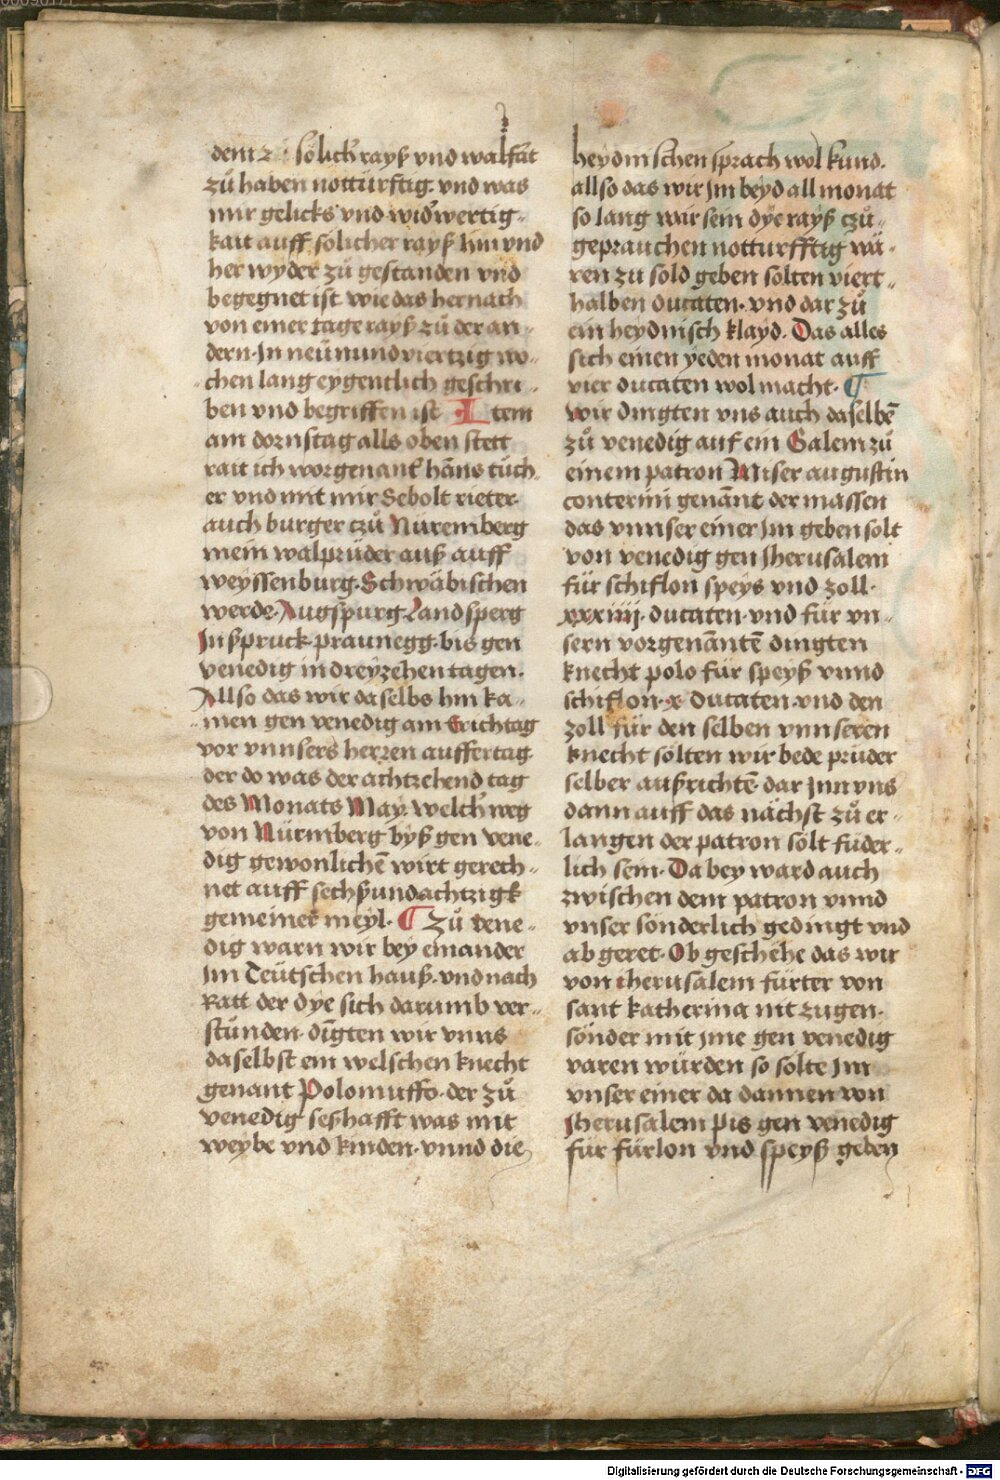 dem solicħ rayß vnd walfart
zů haben notturftig. vnd was
mir gelicks vnd widˀwertig-
kait auff solicher rayß hin vnd
her wyder zů gestanden vnd
begegnet ist wie das hernach
von einer tage rayß zů der an-
dern. Jn neűnundviertzig wo-
chen lang eygentlich geschri-
ben vnd begriffen ist Item
am dornstag alls oben stett
rait ich vorgenant hāns tűch
er vnd mit mir Sebolt rieter.
auch burger czů Nűremberg
mein walprűder auß auff
weyssenburg. Schwäbischen
werde. Augspurg. Landsperg
Jnßpruck. praunegg. bis gen
venedig in dreyzehen tagen.
Allso das wir daselbs hin ka-
men gen venedig am Erichtag
vor vnnsers herren auffertag
der do was der achtzehend tag
des Monats May. welcħ weg
von Nűrmberg byß gen vene-
dig gewonlichē wirt gerech-
net auff sechßundachtzigk
gemeiner meyl. ¶ Zů vene-
dig warn wir bey einander
Jm Teűtschen hauß. vnd nach
Ratt der dye sich darumb ver-
stűnden. dīgten wir vnns
daselbst ein welschen knecht
genant Polomuffo. der zů
venedig seßhafft was mit
weybe vnd kinden. vnnd die
heydnischen sprach wol kund.
allso das wir Jm beyd all monat
so lang wir sein dye rayß czů-
geprauchen notturfftig wä-
ren zu sold geben solten viert-
halben ducaten. vnd dar zů
ein heydnisch klayd. Das alles
sich einen yeden monat auff
vier ducaten wol macht. ¶
wir dingten vns auch daselbē
zů venedig auf ein Galem zů
einem patron Miser augustin
conterini genānt der massen
das vnnser einer Jm geben solt
von venedig gen Jherusalem
fűr schiflon speys vnd zoll.
xxxiiij. ducaten. vnd fűr vn-
sern vorgenāntē dingten
knecht polo fűr speyß vnnd
schiflon. x ducaten. vnd den
zoll fűr den selben vnnseren
knecht solten wir bede prűder
selber außrichtē. dar Jnn vns
dann auff das nächst zů er-
langen der patron solt fűder-
lich sein. Da bey ward auch
zwischen dem patron vnnd
vnser sonderlich gedingt vnd
ab geret. Ob geschehe das wir
von iherusalem fűrter von
sant katherina nit zugen.
sonder mit jme gen venedig
varen wűrden so solte Jm
vnser einer da dannen von
Jherusalem pis gen venedig
fűr fűrlon vnd speyß geben
Digitalisierung gefördert durch die Deutsche Forschungsgemeinschaft - DFG